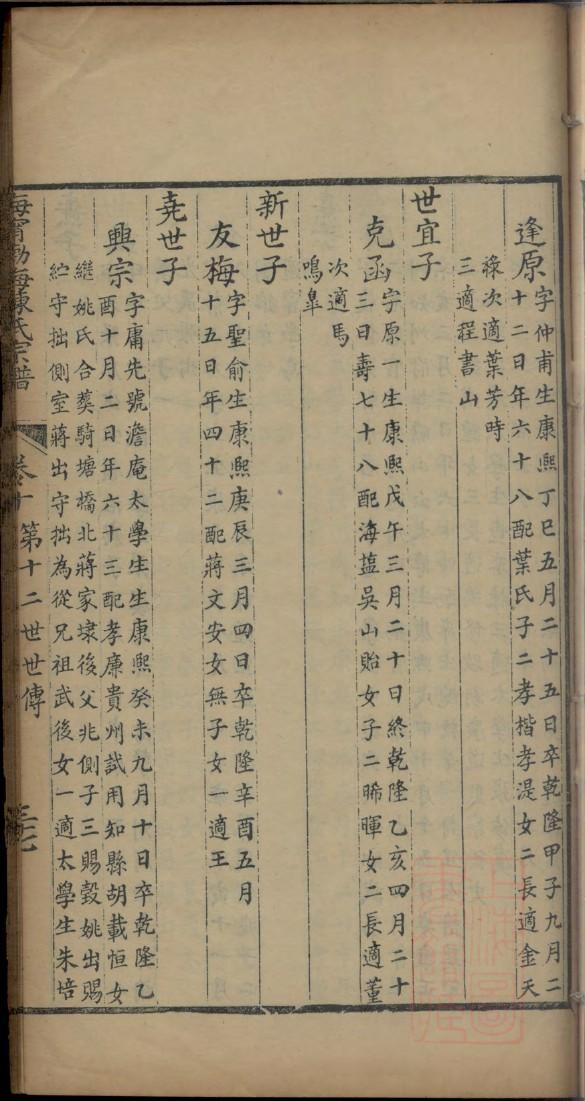 逢原
字仲甫生康熙丁巳五月二十五日卒乾隆甲子九月二
十二日年六十八配葉氏子二孝楷孝湜女二長適金天
祿次適葉芳時
三適程書山
世宜子
克函
字原一生康熙戊午三月二十日終乾隆乙亥四月二十
三日壽七十八配海盐吳山貽女子二晞暉女二長適董
次適馬
鳴臯
新世子
友梅
字聖俞生康熙庚辰三月四日卒乾隆辛酉五月
十五日年四十二配蔣文安女無子女一適王
堯世子
興宗
字庸先號澹庵太學生生康熙癸未九月十日卒乾隆乙
酉十月二日年六十三配孝廉貴州試用知縣胡載恒女
繼姚氏合塟騎塘橋北蔣家埭後父兆側子三賜穀姚出賜
守拙側室蔣出守拙為從兄祖武後女一適太學生朱培
海寧渤海陳氏宗譜
卷十
第十二世世傳
三七